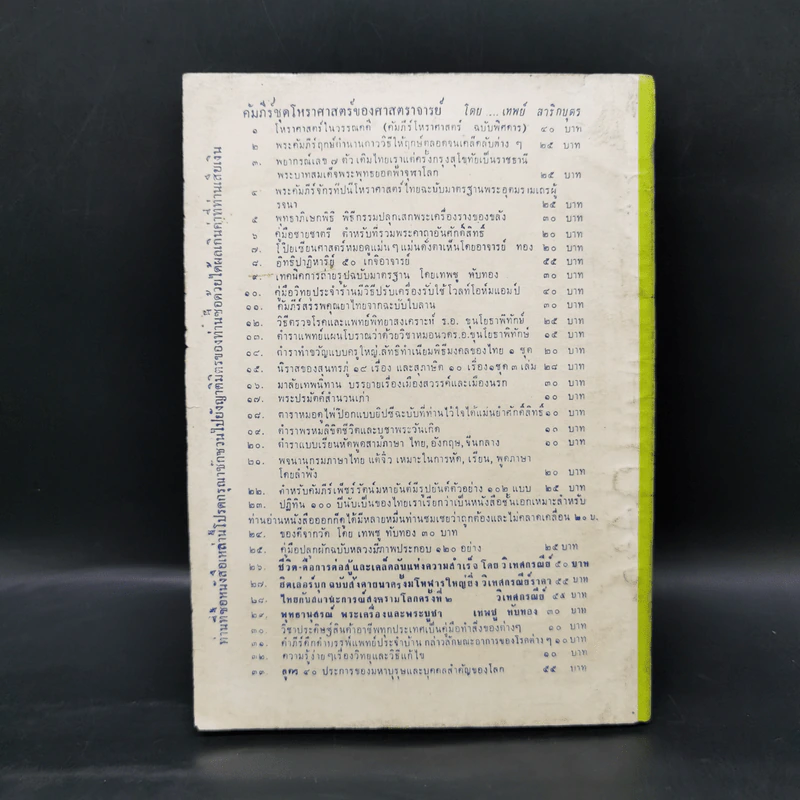 คัมภีร์ชุดโหราศาสตร์ของศาสตราจารย์ โดย ... เทพย์ สาริกบุตร
๑ โหราศาสตร์ในวรรณคดี (คัมภีร์โหราศาสตร์ ฉบับพิศดาร) ๔๐ บาท
๒ พระคัมภีร์ฤกษ์กำเนิดภาววิธีให้ฤกษ์ตลอดจนเคล็ดลับต่าง ๆ ๒๕ บาท
๓. พยากรณ์เลข ๗ ตัว เดิมไทยเราแต่ครั้งกรุงสุโขทัยเป็นราชธานี
พระบาทสมเด็จพระพุทธยอดฟ้าจุฬาโลก ๒๕ บาท
๔ พระคัมภีร์จักรทีปนีโหราศาสตร์ไทยฉะบับมาตรฐานพระอุดมรามเถรผู้
รจนา ๒๕ บาท
๕ พุทธาภิเษกพิธี พิธีกรรมปลุกเสกพระเครื่องรางของขลัง ๓๐ บาท
๖ คู่มือชายชาตรี ตำหรับที่รวมพระคาถาอันศักดิ์สิทธิ์ ๒๐ บาท
๗. โป๊ยเซียนศาสตร์หมอดูแม่น ๆ แม่นดั่งตาเห็นโดยอาจารย์ ทอง ๒๐ บาท
๘. อิทธิปาฏิหาริย์ ๕๐ เกจิอาจารย์ ๕๕ บาท
๙. เทคนิคการถ่ายรูปฉบับมาตรฐาน โดยเทพชู ทับทอง ๓๐ บาท
๑๐. คู่มือวิทยุประจำร้านมีวิธีปรับเครื่องรับใช้โวลท์โอห์มแอมป์ ๔๐ บาท
๑๑. คัมภีร์สรรพคุณยาไทยจากฉะบับใบลาน ๓๐ บาท
๑๒. วิธีตรวจโรคและแพทย์พิทยาสงเคราะห์ ร.อ. ขุนโยธาพิทักษ์ ๒๕ บาท
๑๓. ตำราแพทย์แผนโบราณว่าด้วยวิชาหมอนวดร.อ.ขุนโยธาพิทักษ์ ๑๕ บาท
๑๔. ตำราทำขวัญแบบครูใหญ่.ลัทธิทำเนียมพิธีมงคลของไทย ๑ ชุด ๒๐ บาท
๑๕. นิราสของสุนทรภู่ ๑๔ เรื่อง และสุภาษิต ๑๐ เรื่อง๑ชุด ๓ เล่ม ๒๘ บาท
๑๖. มาลัยเทพนิทาน บรรยายเรื่องเมืองสวรรค์และเมืองนรก ๓๐ บาท
๑๗. พระปรมัตถ์สำนวนเก่า ๑๐ บาท
๑๘. ตาราหมอดูไพ่ป๊อกแบบยิปซีฉะบับที่ท่านไว้ใจได้แม่นยำศักดิ์สิทธิ์ ๑๐ บาท
๑๙. ตำราพรหมลิขิตชีวิตและบูชาพระวันเกิด ๑๐ บาท
๒๐. ตำราแบบเรียนหัดพูดสามภาษา ไทย, อังกฤษ, จีนกลาง ๑๐ บาท
๒๑. พจนานุกรมภาษาไทย แต้จิ๋ว เหมาะในการหัด, เรียน, พูดภาษา
โดยลำพัง ๒๐ บาท
๒๒. ตำหรับคัมภีร์เพ็ชร์รัตน์มหายันต์มีรูปยันต์ตัวอย่าง ๑๐๒ แบบ ๒๕ บาท
๒๓. ปฏิทิน ๑๐๐ ปีนับเป็นของไทยเราเรียกว่าเป็นหนังสือชั้นเอกเหมาะสำหรับ
ท่านอ่านหนังสือออกก็ดูได้มีหลายหมื่นท่านชมเชยว่าถูกต้องและไม่คลาดเคลื่อน ๒๐ บ.
๒๔. ของดีจากวัด โดย เทพชู ทับทอง ๓๐ บาท
๒๕. คู่มือปลูกผักฉบับหลวงมีภาพประกอบ ๑๒๐ อย่าง ๒๕ บาท
๒๖. ชีวิต-คือการต่อสู้และเคล็ดลับแห่งความสำเร็จ โดย วิเทศกรณีย์ ๕๐ บาท
๒๗. ฮิตเล่อร์บุก ฉบับสั่งตายนาครั้งมโหฬารใหญ่ยิ่ง วิเทศกรณีย์ราคา ๕๕ บาท
๒๘. ไทยกับสถานะการณ์สงความโลกครั้งที่ ๒ วิเทศกรณีย์ ๕๕ บาท
๒๙. พุทธานุสรณ์ พระเครื่องและพระบูชา เทพชู ทับทอง ๓๐ บาท
๓๐. วิชาประดิษฐ์สินค้าอาชีพทุกประเทศเป็นคู่มือทำสิ่งของต่างๆ ๑๐ บาท
๓๑. คัมภีร์คิดค่าบรรพ์แพทย์ประจำบ้าน กล่าวลักษณะอาการของโรคต่าง ๆ ๑๐ บาท
๓๒. ความรู้ง่าย ๆ เรื่องวิทยุและวิธีแก้ไข ๑๐ บาท
๓๓. สูตร ๔๐ ประการของมหาบุรุษและบุคคลสำคัญของโลก ๕๕ บาท
ท่านที่ซื้อหนังสือเหล่านี้โปรดกรุณาชักชวนไปยังญาติมิตรของท่านซื้อด้วยได้ผลเกินค่าที่ท่านเสียเงิน